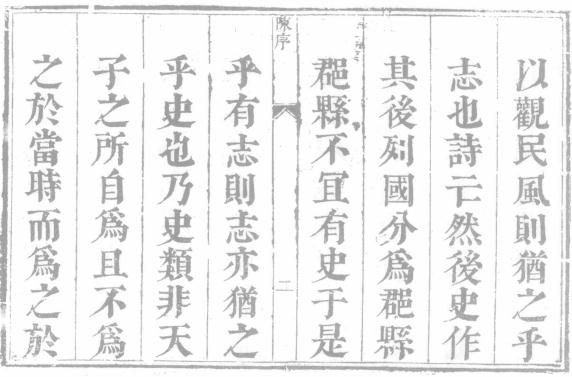 以觀民風則猶之乎
志也詩亡然後史作
其後列國分爲郡縣
郡縣不冝有史于是
陳序
二
乎有志則志亦猶之
乎史也乃史類非天
子之所自爲且不爲
之於當時而爲之於